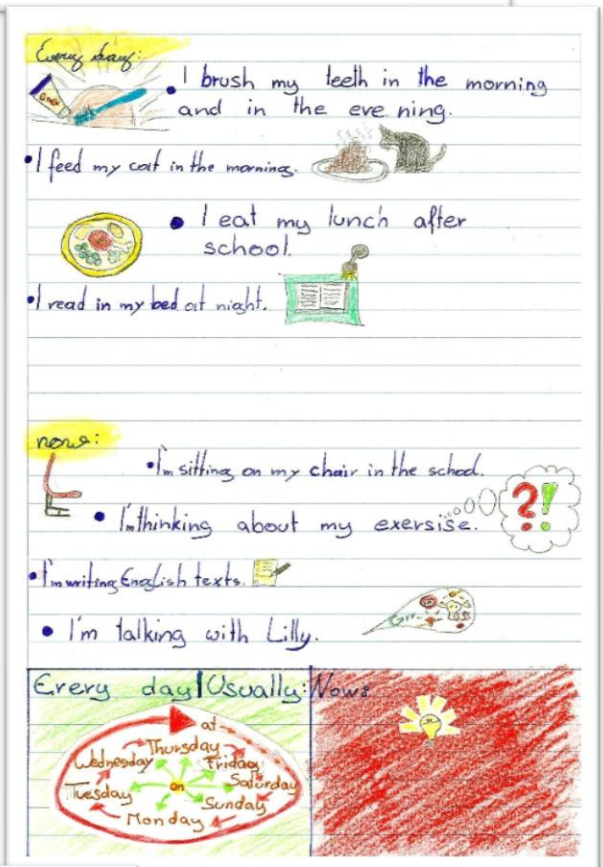 Every day:
• I brush my teeth in the morning
and in the eve ning.
• I feed my cat in the morning.
• I eat my lunch after
school.
• I read in my bed at night.
now:
• I'm sitting on my chair in the school.
?!
• I'm thinking about my exersise.
• I'm writing English texts.
• I'm talking with Lilly.
Every day|Usually: Now:
at
Thursday
Wednesday Friday
Tuesday on Saturday
Sunday
Monday